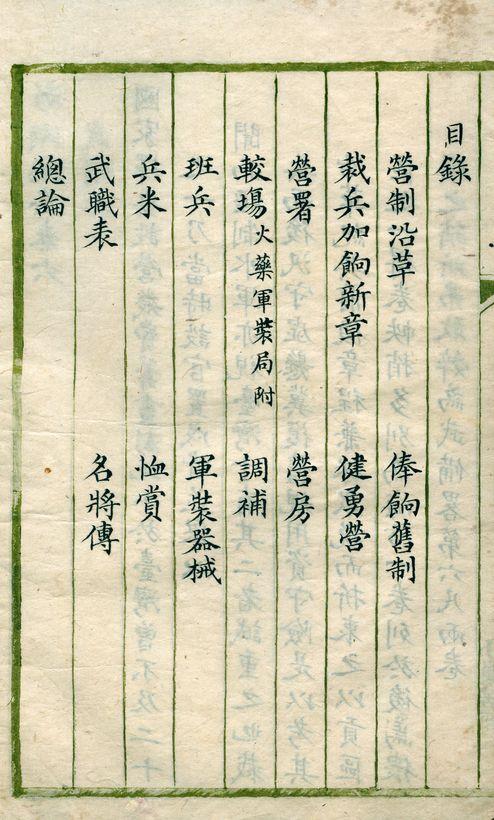 目錄
營制沿革 俸餉舊制
裁兵加餉新章 健勇營
營署 營房
較場火藥軍裝局附 調補
班兵 軍裝器械
兵米 恤賞
武職表 名將傳
總論